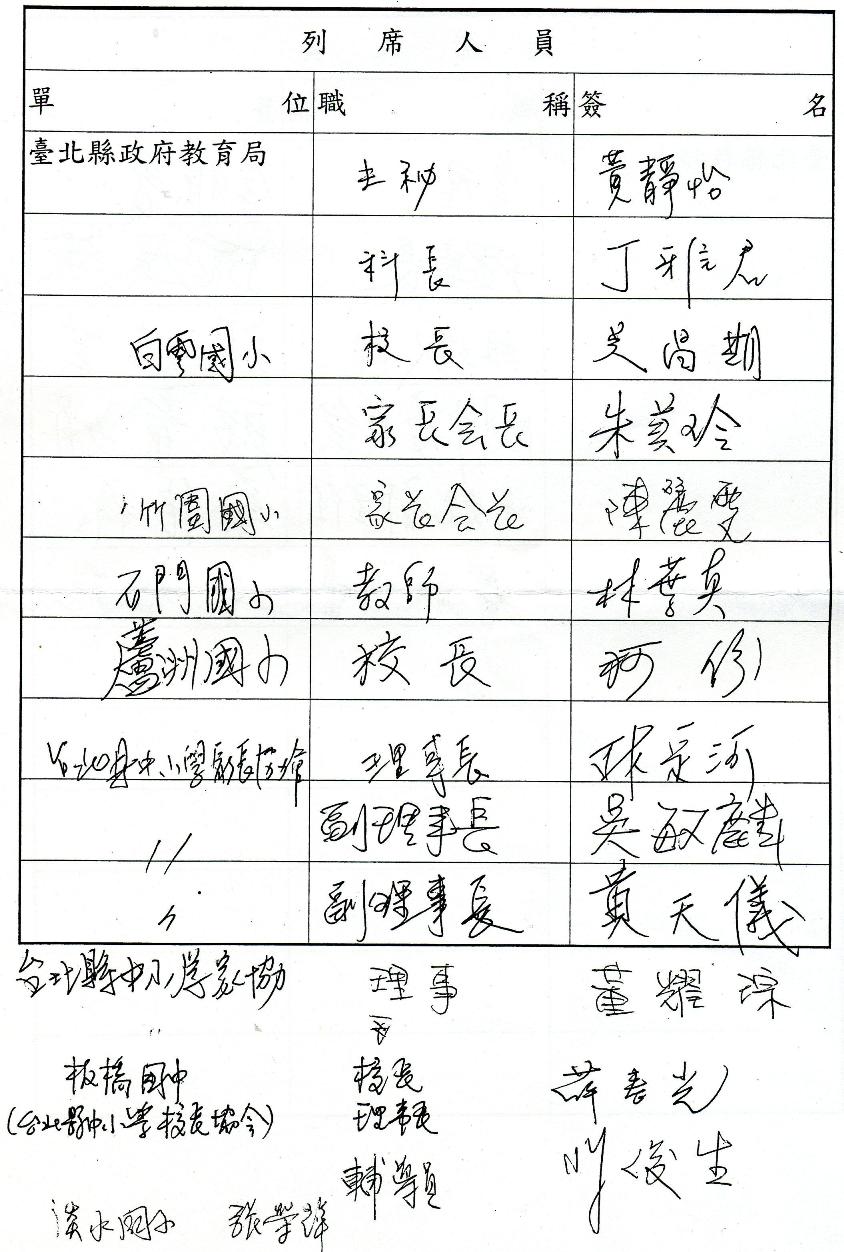 列席人員
單位 職稱 簽名
臺北縣政府教育局 主秘 黃靜怡
科長 丁雅君
白雲國小 校長 吳昌期
家長会長 朱英玲
竹圍國小 家长会长 陳麗雯
石門國小 教師 林葦真
蘆洲國小 校長 柯份
台北縣中小學家長協會 理事長 林定河
〃 副理事長 吳敏麟
〃 副理事長 黃天儀
台北縣中小學家協 理事 董耀琮
〃 〃
板橋國中 校長 薛春光
(台北縣中小學校長協会) 理事長
輔導員 俊生
淡水國小 張榮輝